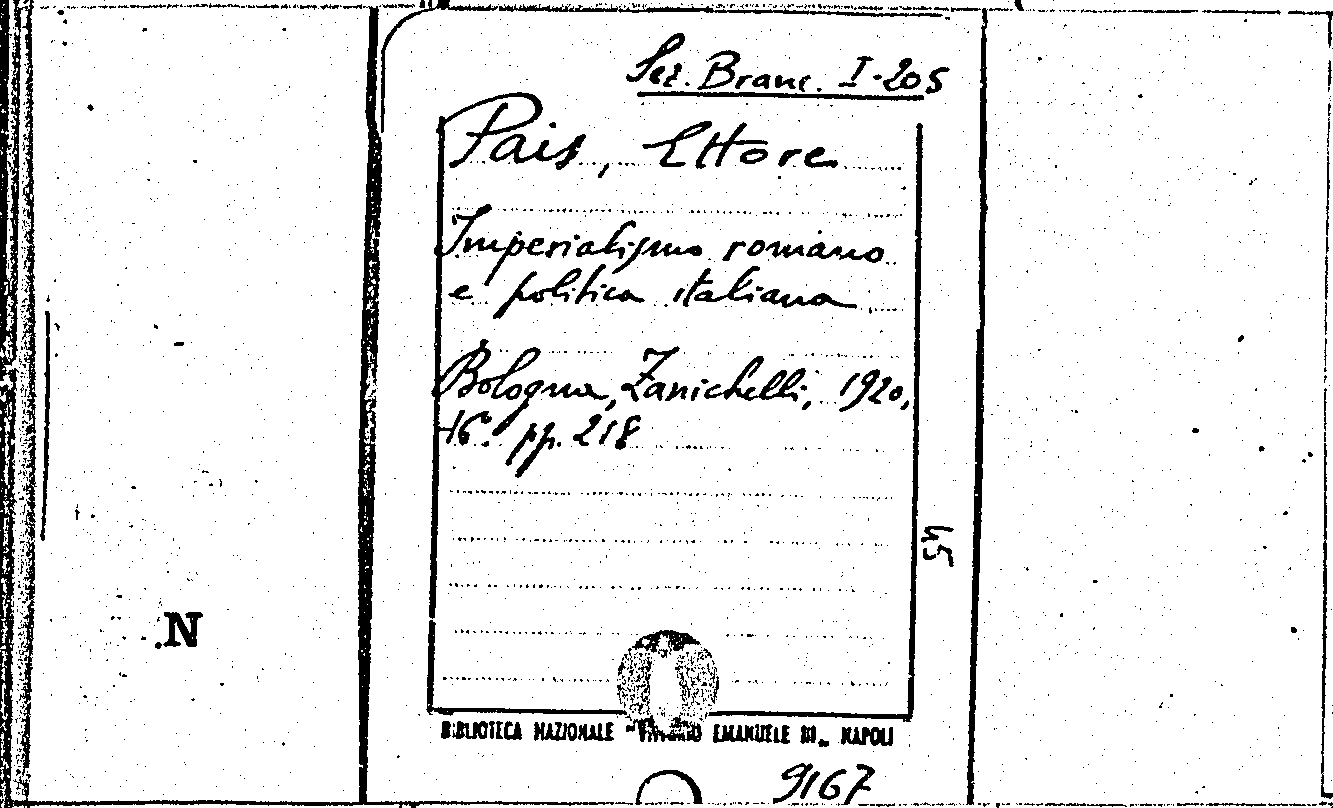 Sez. Branc. I-205
Pais, Ettore
Imperialismo romano
e politica italiana
Bologna, Zanichelli, 1920,
16° pp. 218
45
N
BIBLIOTECA NAZIONALE "VITTORIO EMANUELE III„ NAPOLI
9167